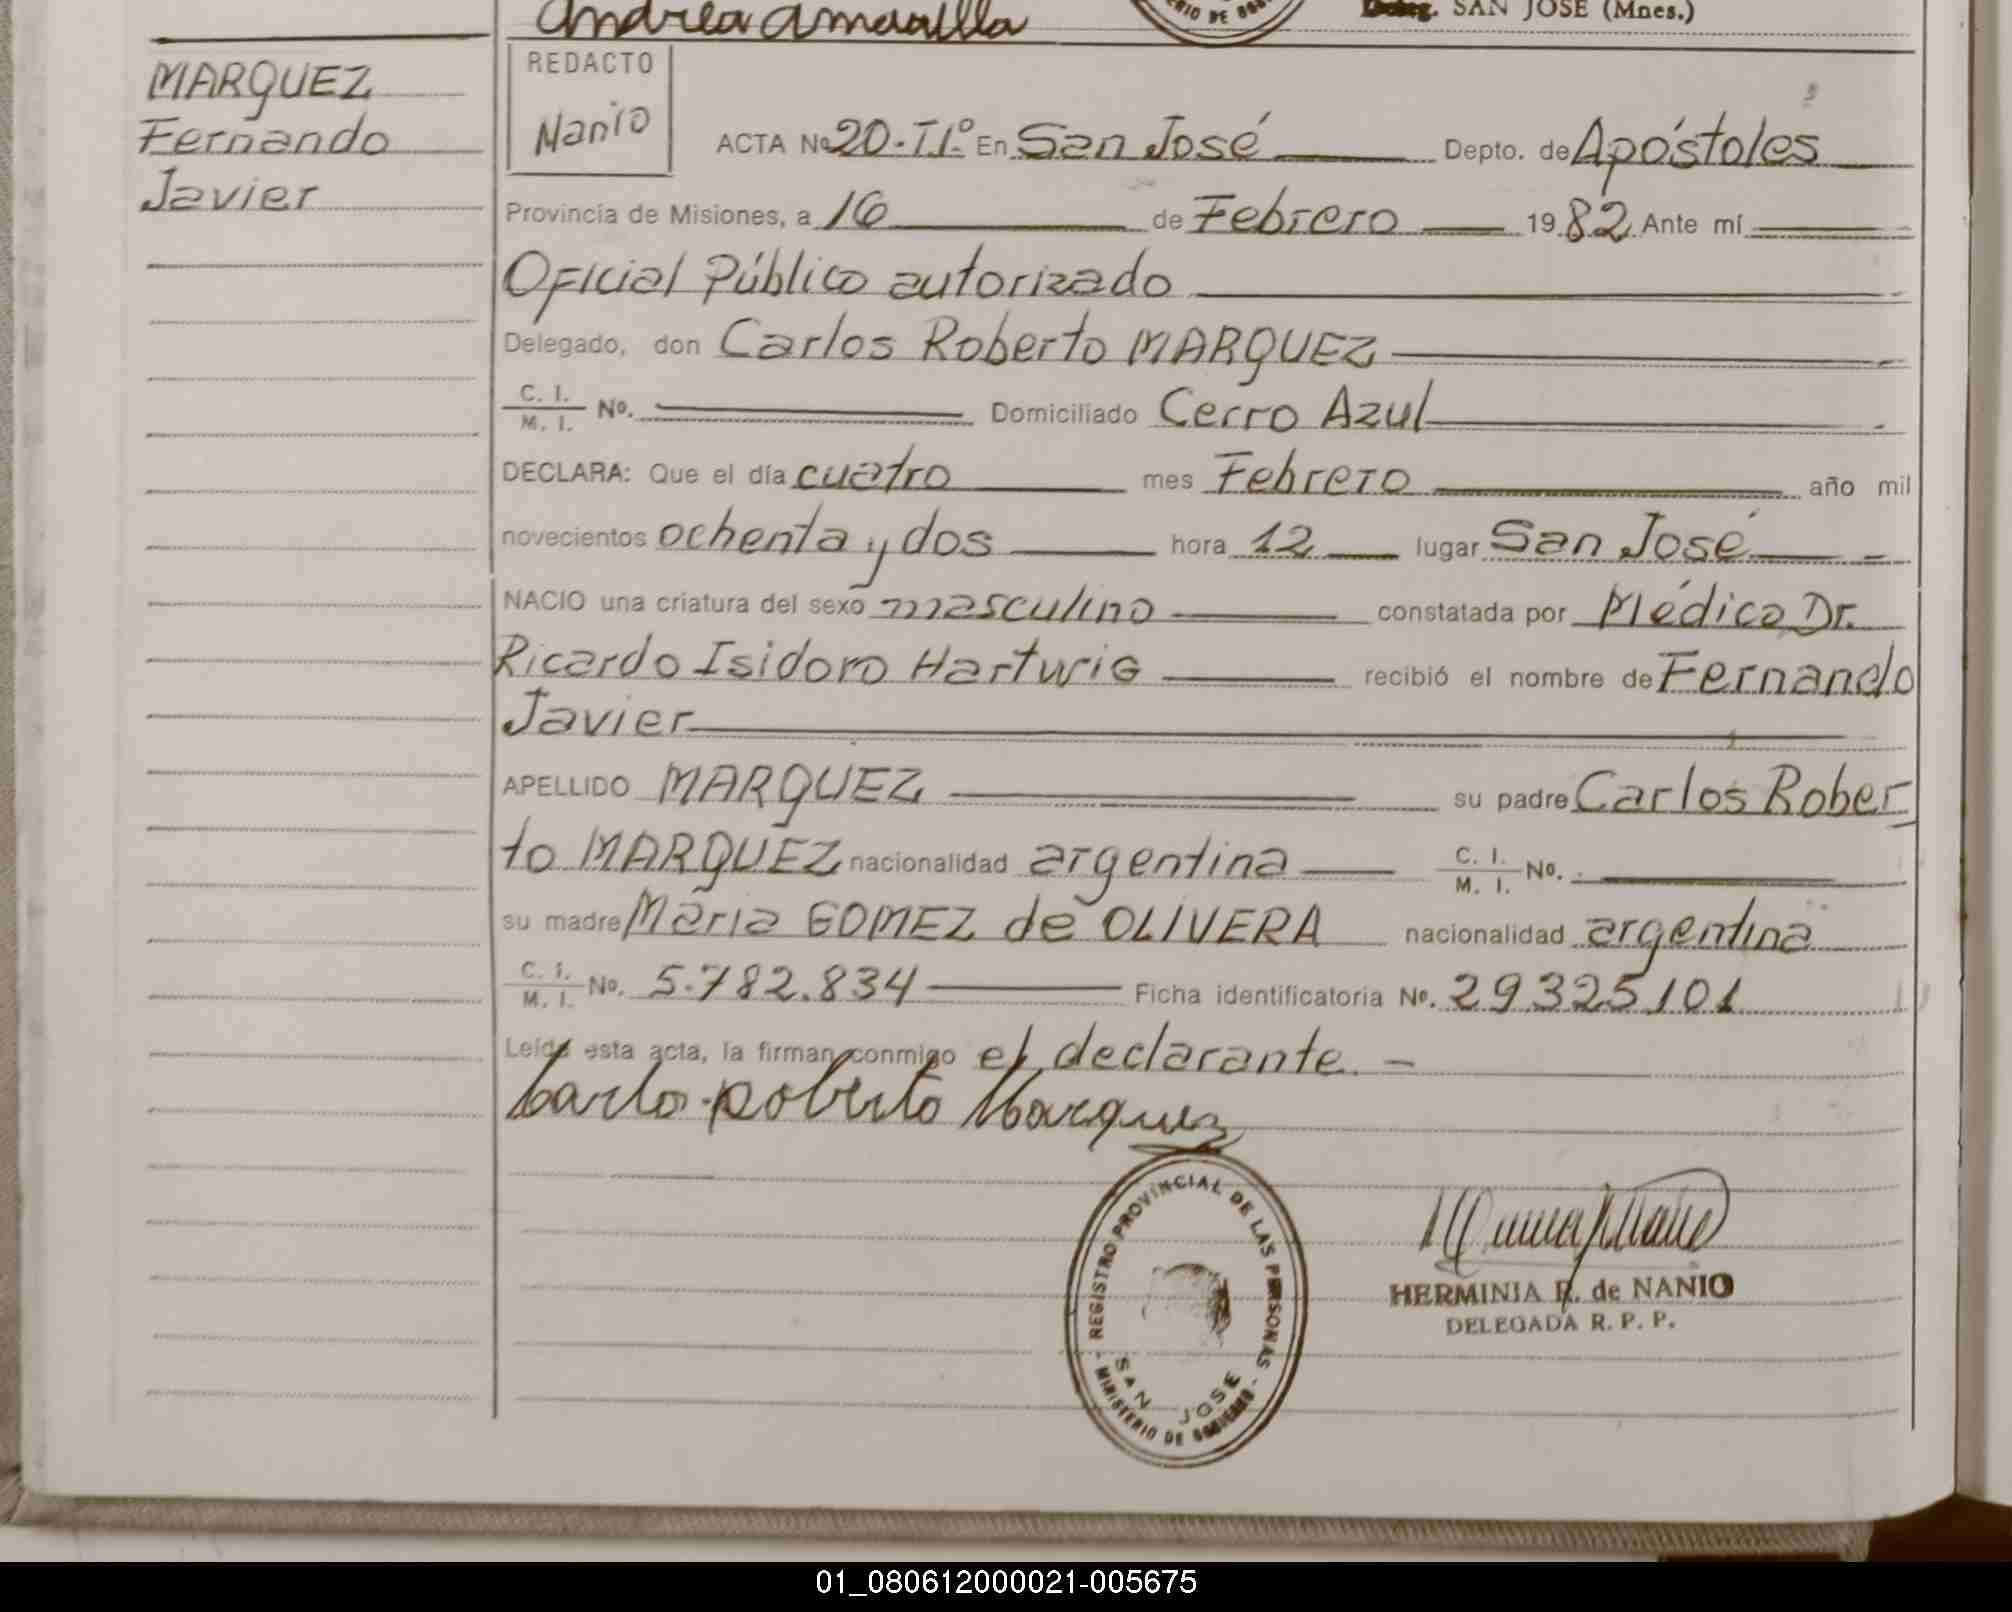 Andrea Amarilla
IO DE GOB
Deleg. SAN JOSE (Mnes.)
MARQUEZ
Fernando
Javier
REDACTO
Nanio
ACTA No 20-T1º En San José Depto. de Apóstoles
Provincia de Misiones, a 16 de Febrero 1982 Ante mí
Oficial Público autorizado
Delegado, don Carlos Roberto MARQUEZ
C. I. / M. I. No. Domiciliado Cerro Azul
DECLARA: Que el día cuatro mes Febrero año mil
novecientos ochenta y dos hora 12 lugar San José
NACIO una criatura del sexo masculino constatada por Médico Dr.
Ricardo Isidoro Hartwig recibió el nombre de Fernando
Javier
APELLIDO MARQUEZ su padre Carlos Rober
to MARQUEZ nacionalidad argentina C. I. / M. I. No.
su madre Maria GOMEZ de OLIVERA nacionalidad argentina
C. I. / M. I. No. 5.782.834 Ficha identificatoria No. 29325101
Leída esta acta, la firman conmigo el declarante.-
Carlo Roberto Marquez
REGISTRO PROVINCIAL DE LAS PERSONAS
SAN JOSE
MINISTERIO DE GOBIERNO
HERMINIA R. de NANIO
DELEGADA R. P. P.
01_080612000021-005675